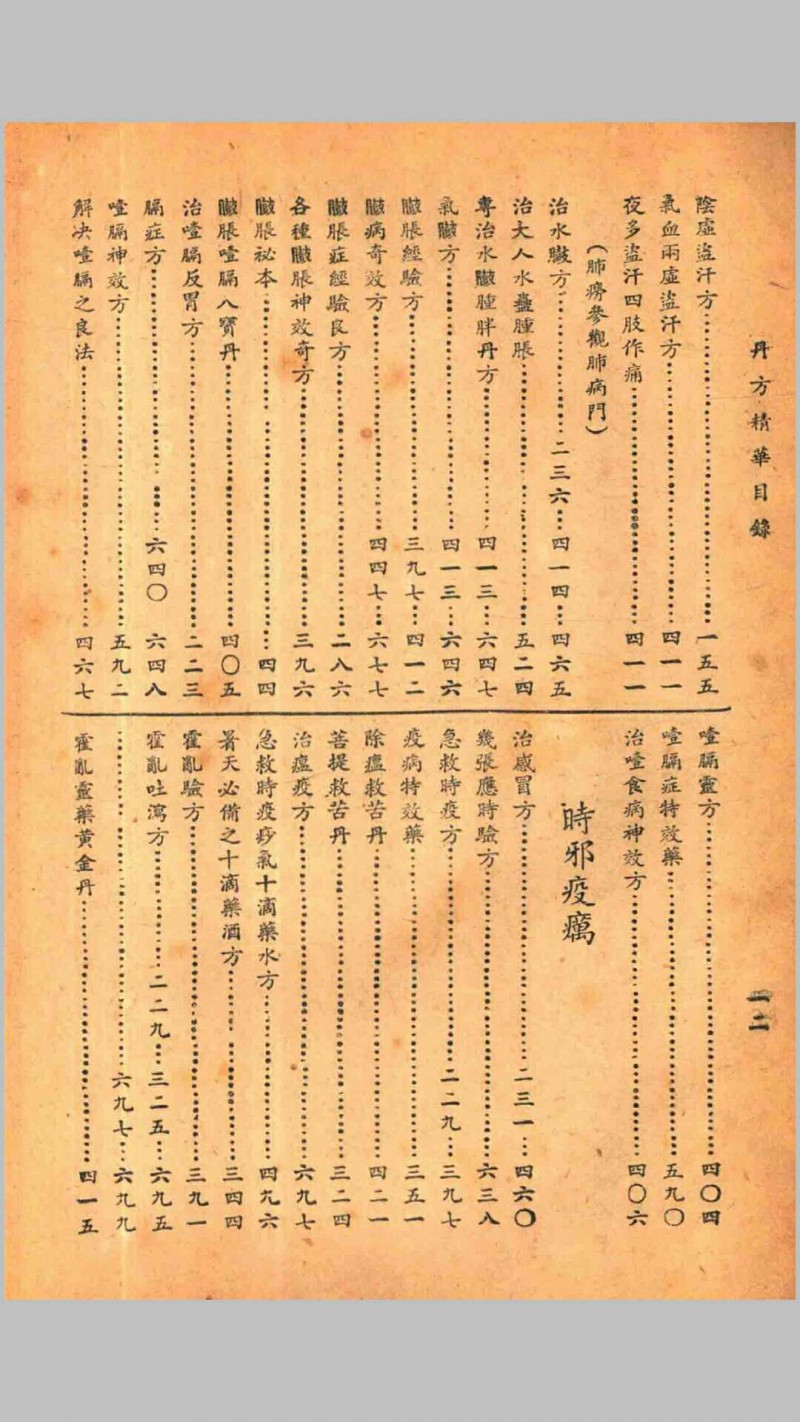 丹方精華目錄
一二
陰虛盜汗方……一五五
氣血兩虛盜汗方……四一一
夜多盜汗四肢作痛……四一一
(肺癆參觀肺病門)
治水臌方……二三六…四一四…四六五
治大人水蠱腫脹……五二四
專治水臌腫胖丹方……四一三…六四七
氣臌方……四一三…六四六
臌脹經驗方……三九七…四一二
臌病奇效方……四四七…六七七
臌脹症經驗良方……二八六
各種臌脹神效奇方……三九六
臌脹祕本……四四
臌脹噎膈八寶丹……四〇五
治噎膈反胃方……二二三
膈症方……六四〇…六四八
噎膈神效方……五九二
解决噎膈之良法……四六七
噎膈靈方……四〇四
噎膈症特效藥……五九〇
治噎食病神效方……四〇六
時邪疫癘
治感冒方……二三一…四六〇
幾張應時驗方……六三八
急救時疫方……二二九…三九七
疫病特效藥……三五一
除瘟救苦丹……四二一
菩提救苦丹……三二四
治瘟疫方……六九七
急救時疫痧氣十滴藥水方……四九六
暑天必備之十滴藥酒方……三四四
霍亂驗方……三九一
霍亂吐瀉方……二二九…三二五…六九五
……六九七…六九九
霍亂靈藥黃金丹……四一五